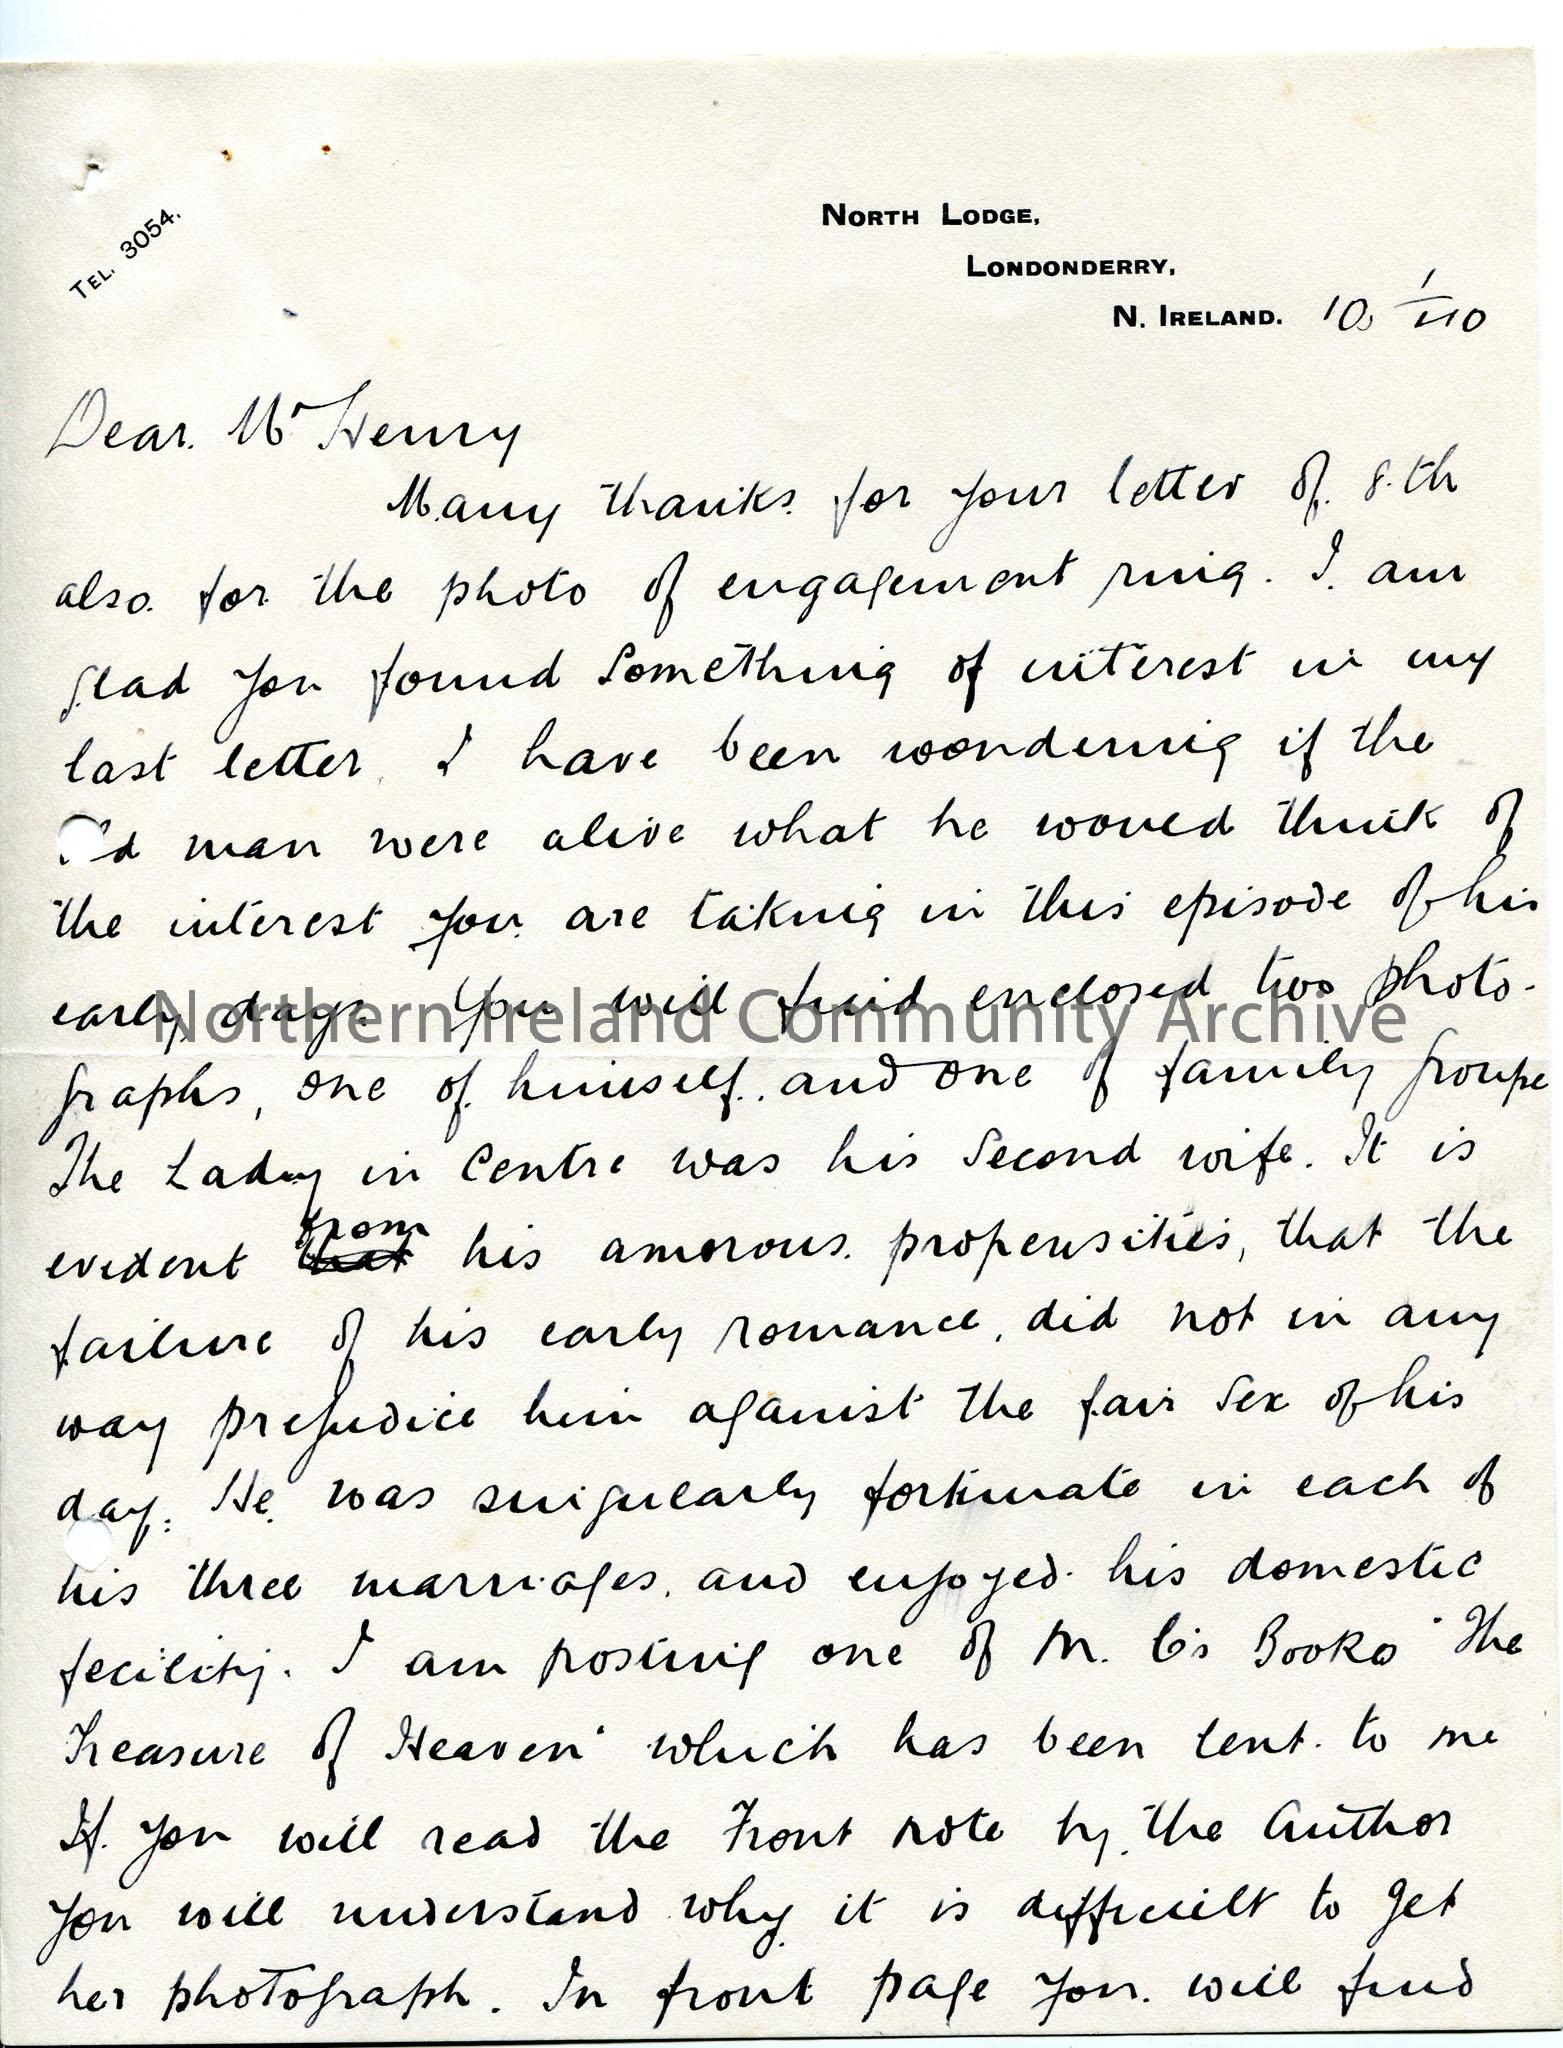 TEL. 3054.
NORTH LODGE,
LONDONDERRY,
N. IRELAND. 10 1/40
Dear Mr Henry
Many thanks for your letter of 8th
also for the photo of engagement ring. I am
glad you found something of interest in my
last letter. I have been wondering if the
old man were alive what he would think of
the interest you are taking in this episode of his
early days. You will find enclosed two photo-
Northern Ireland Community Archive
graphs, one of himself and one of family groupe
The Lady in Centre was his Second wife. It is
from
evident that his amorous propensities, that the
failure of his early romance, did not in any
way prejudice him against the fair Sex of his
day. He was singularly fortunate in each of
his three marriages, and enjoyed his domestic
fecility. I am posting one of M. C's Books "The
Treasure of Heaven" which has been lent to me
If you will read the Front note by the Author
you will understand why it is difficult to get
her photograph. In front page you will find